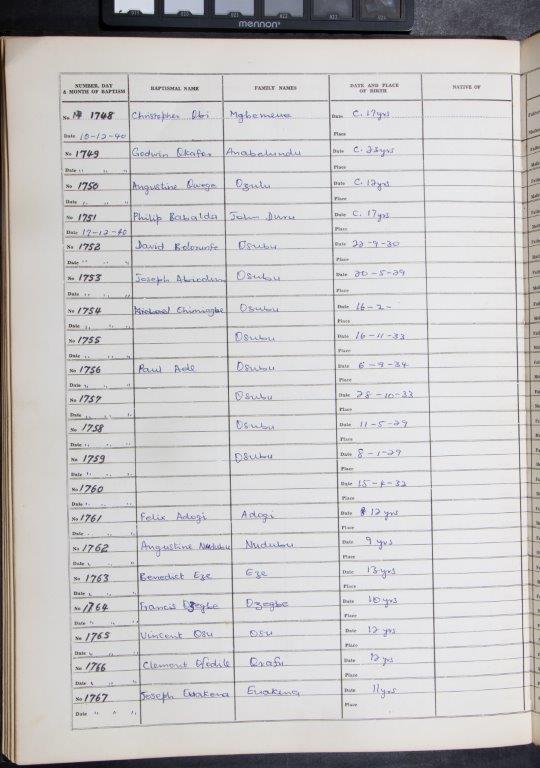 mennon
NUMBER, DAY & MONTH OF BAPTISM BAPTISMAL NAME FAMILY NAMES DATE AND PLACE OF BIRTH NATIVE OF
No 1748 Christopher Obi Mgbemena Date C. 17yrs
Date 10-12-40 Place
No 1749 Godwin Okafor Anabalundu Date C. 23yrs
Date " " " Place
No 1750 Angustine Date C. 12yrs
Date " " " Place
No 1751 Philip Babalda John Duru Date C. 17yrs
Date 17-12-40 Place
No 1752 David Osubu Date 22-9-30
Date " " " Place
No 1753 Joseph Abiodun Osubu Date 20-5-29
Date " " " Place
No 1754 Osubu Date 16-2-
Date " " " Place
No 1755 Osubu Date 16-11-33
Date " " " Place
No 1756 Paul Ade Osubu Date 6-9-34
Date " " " Place
No 1757 Osubu Date 28-10-33
Date " " " Place
No 1758 Osubu Date 11-5-29
Date " " " Place
No 1759 Osubu Date 8-1-29
Date " " " Place
No 1760 Date 15-4-32
Date " " " Place
No 1761 Felix Adogi Adogi Date 12 yrs
Date " " " Place
No 1762 Angustine Nudubu Nudubu Date 9 yrs
Date " " " Place
No 1763 Benedict Eze Eze Date 13yrs
Date " " " Place
No 1764 Francis Date 10 yrs
Date " " " Place
No 1765 Vincent Osu Osu Date 12 yrs
Date " " " Place
No 1766 Clement Date 12 yrs
Date " " " Place
No 1767 Joseph Ewakena Ewakena Date 11yrs
Date " " " Place